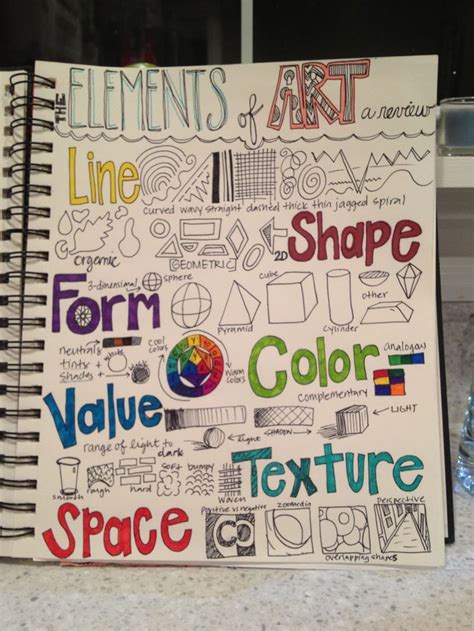 THE ELEMENTS of ART a review
Line
curved wavy straight dashed thick thin jagged spiral
organic
GEOMETRIC
2D
Shape
3-dimensional
sphere
cube
other
Form
pyramid
cylinder
neutrals
tints +
shades →
white
cool colors
warm colors
Color
analogous
complementary
Value
range of light to dark
SHADOW
LIGHT
smooth
rough
hard
soft
bumpy
woven
Texture
Space
positive vs negative
zoomed in
overlapping shapes
perspective